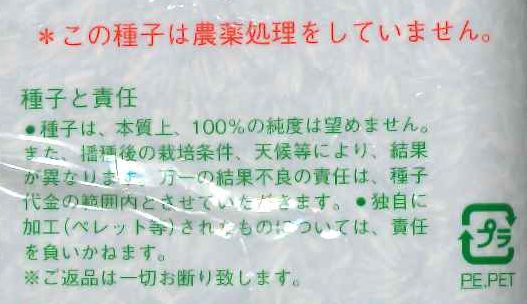 ＊この種子は農薬処理をしていません。
種子と責任
●種子は、本質上、100%の純度は望めません。
また、播種後の栽培条件、天候等により、結果
が異なります。万一の結果不良の責任は、種子
代金の範囲内とさせていただきます。●独自に
加工(ペレット等)されたものについては、責任
を負いかねます。
※ご返品は一切お断り致します。
プラ
PE,PET